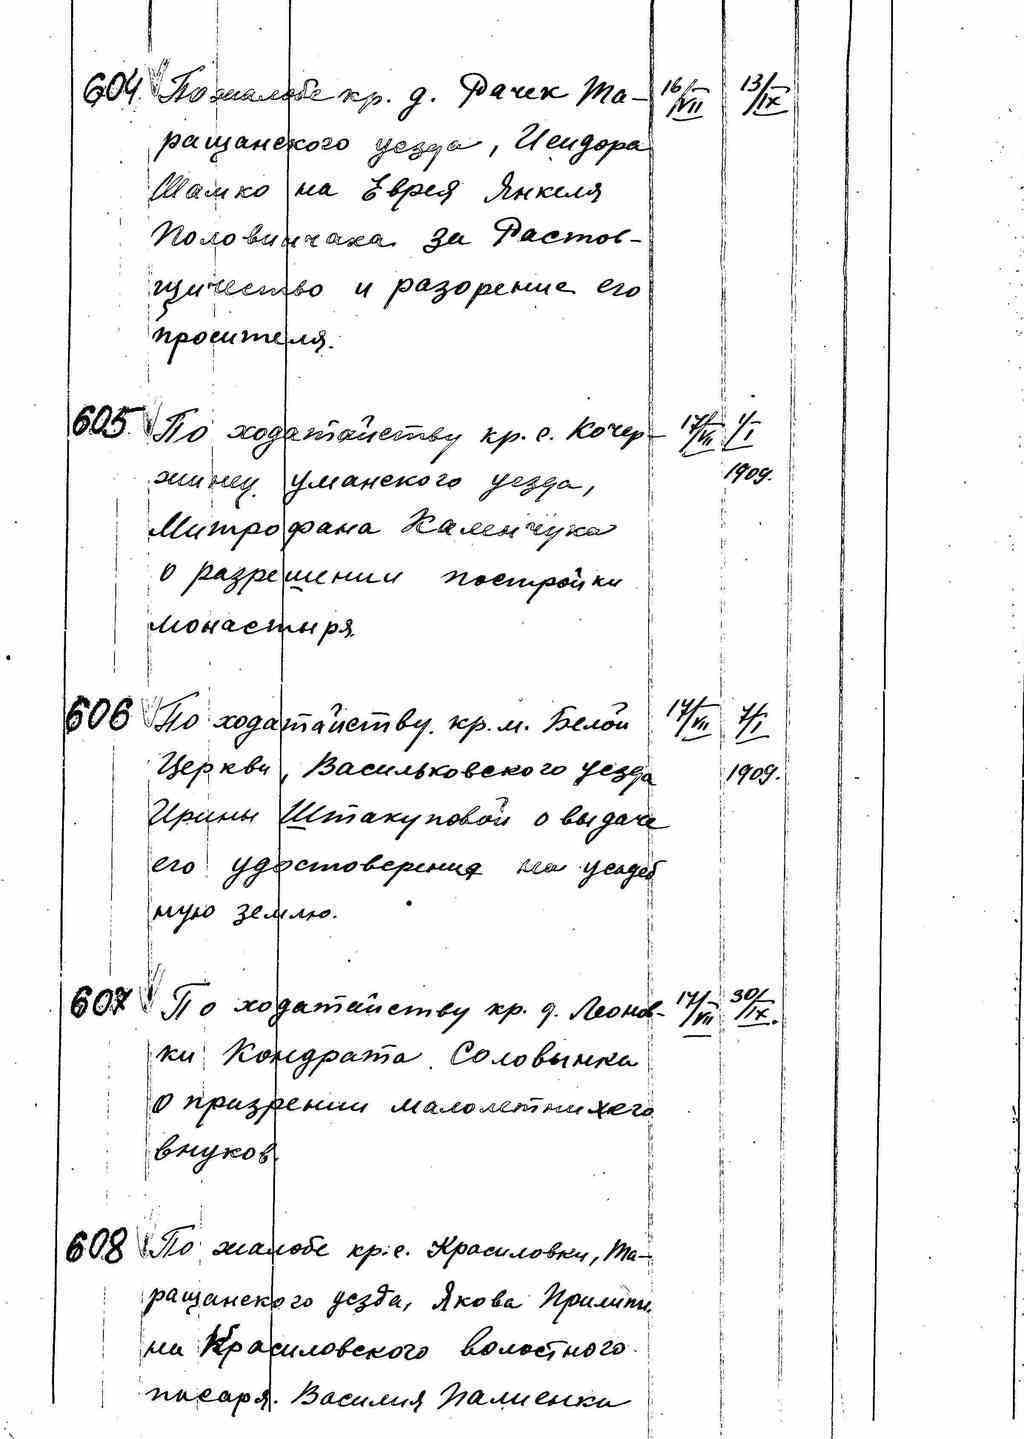 604 По жалобе кр. д. Рачек Та- 16/VII 13/IX
ращанского уезда, Исидора
Шамко на Еврея Янкеля
Половинчака за Растов-
щичество и разорение его
просителя.
605 По ходатайству кр. с. Кочер- 17/VII 1/I
жинец уманского уезда, 1909г.
Митрофана Каленчука
о разрешении постройки
монастыря
606 По ходатайству кр. м. Белой 17/VII 7/I
Церкви, Васильковского уезда 1909.
Ирины Штакуповой о выдаче
его удостоверения на усадеб
ную землю.
607 По ходатайству кр. д. Леонов- 17/VII 30/IX.
ки Кондрата Соловьинка
о призрении малолетних его
внуков.
608 По жалобе кр. с. Красиловки, Та-
ращанского уезда, Якова
на Красиловского волостного
писаря Василия Палиенки